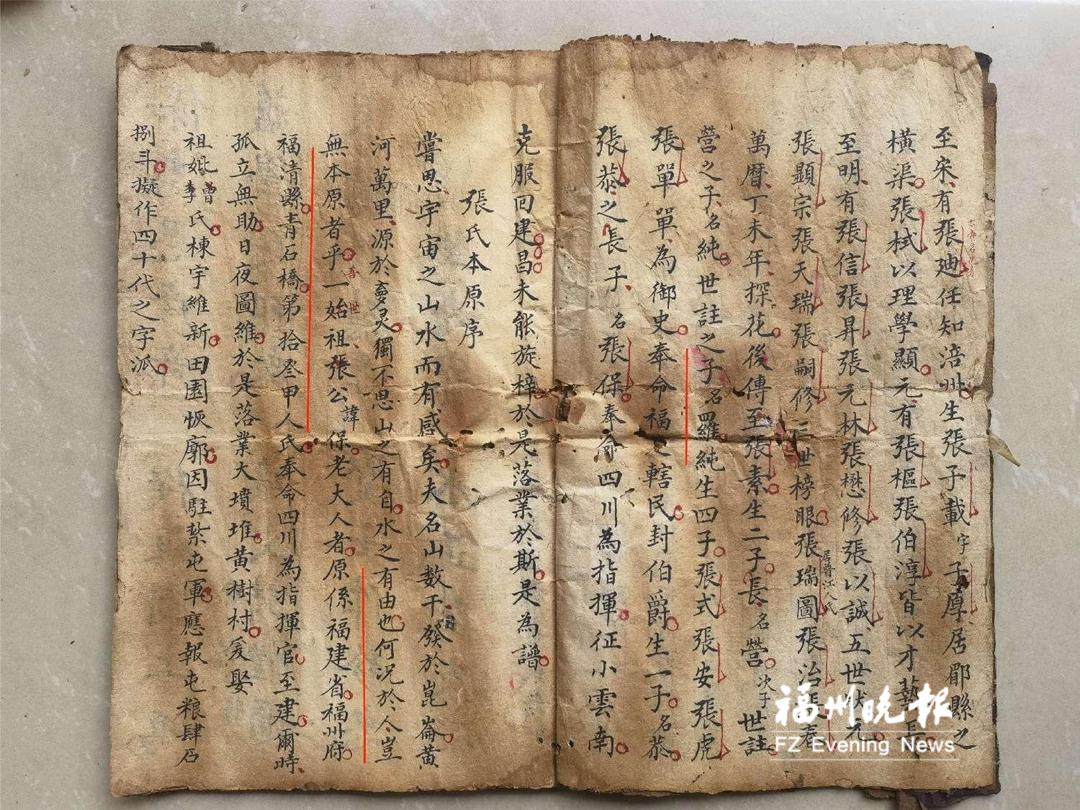 至宋有張廸任知涪州生張子載字子厚居郿縣之
橫渠張栻以理學顯元有張樞張伯淳皆以才藝
至明有張信張昇張元林張懋修張以誠五世狀元
張顯宗張天瑞張嗣修三世榜眼張瑞圖張治張春
萬曆丁未年探花後傳至張素生二子長名營次子世註
營之子名純世註之子名羅純生四子張式張安張虎
張單單為御史奉命福之轄民封伯爵生一子名恭
張恭之長子名張保奉命四川為指揮征小雲南
克服回建昌未能旋梓於是落業於斯是為譜
張氏本原序
嘗思宇宙之山水而有感矣夫名山數千發於崑崙黃
河萬里源於獨不思山之有自水之有由也何況於人豈
無本原者乎吾世一始祖張公諱保老大人者原係福建省福州府
福清縣青石橋第拾叁甲人氏奉命四川為指揮官至建爾時
孤立無助日夜圖維於是落業大墳堆黃樹村爰娶
祖妣曾李氏棟宇維新田園恢廓因駐紮屯軍應報屯粮肆石
捌斗擬作四十代之字派
福州晚報
FZ Evening News